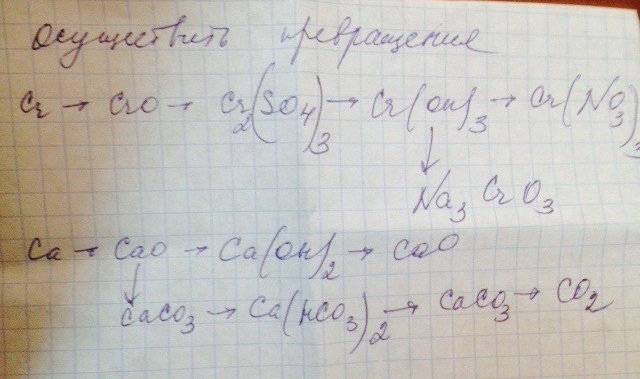 осуществить превращение
Cr → CrO → Cr₂(SO₄)₃ → Cr(OH)₃ → Cr(NO₃)₃
↓
Na₃CrO₃
Ca → CaO → Ca(OH)₂ → CaO
↓
CaCO₃ → Ca(HCO₃)₂ → CaCO₃ → CO₂